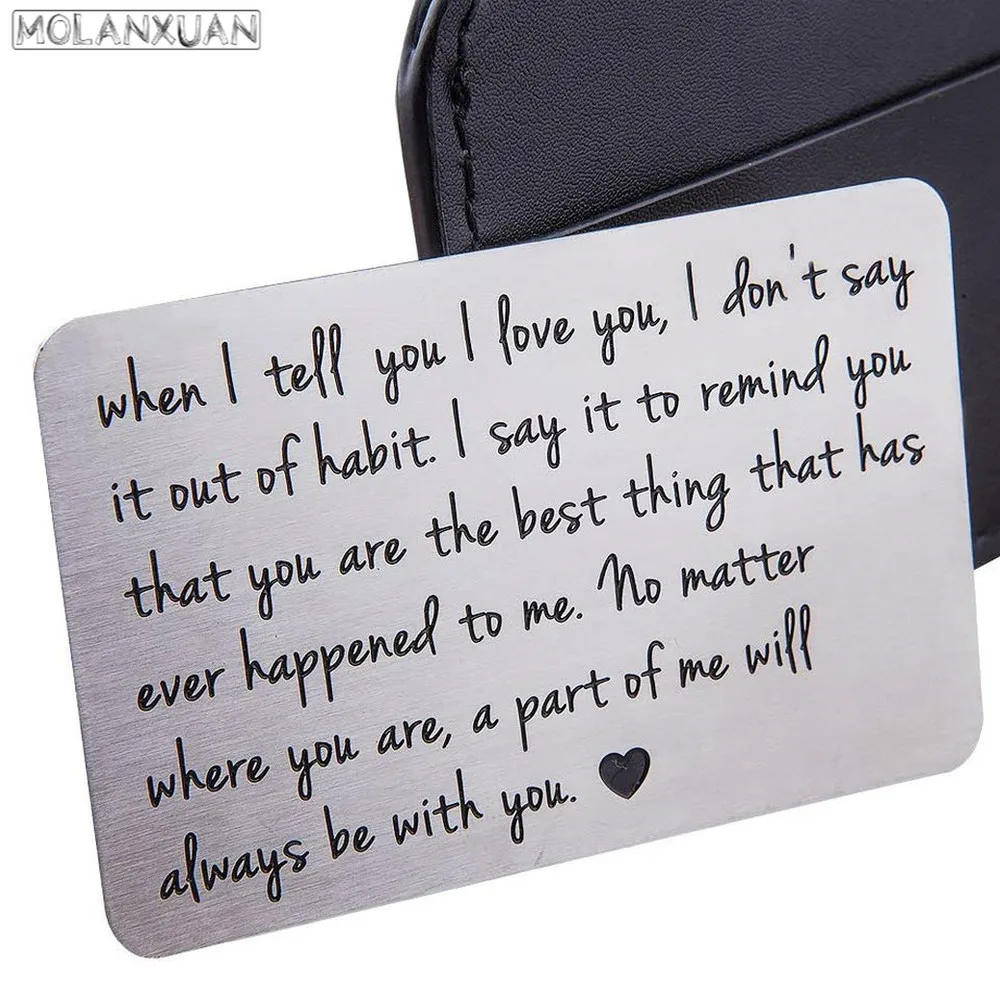 MOLANXUAN
when I tell you I love you, I don't say
it out of habit. I say it to remind you
that you are the best thing that has
ever happened to me. No matter
where you are, a part of me will
always be with you.